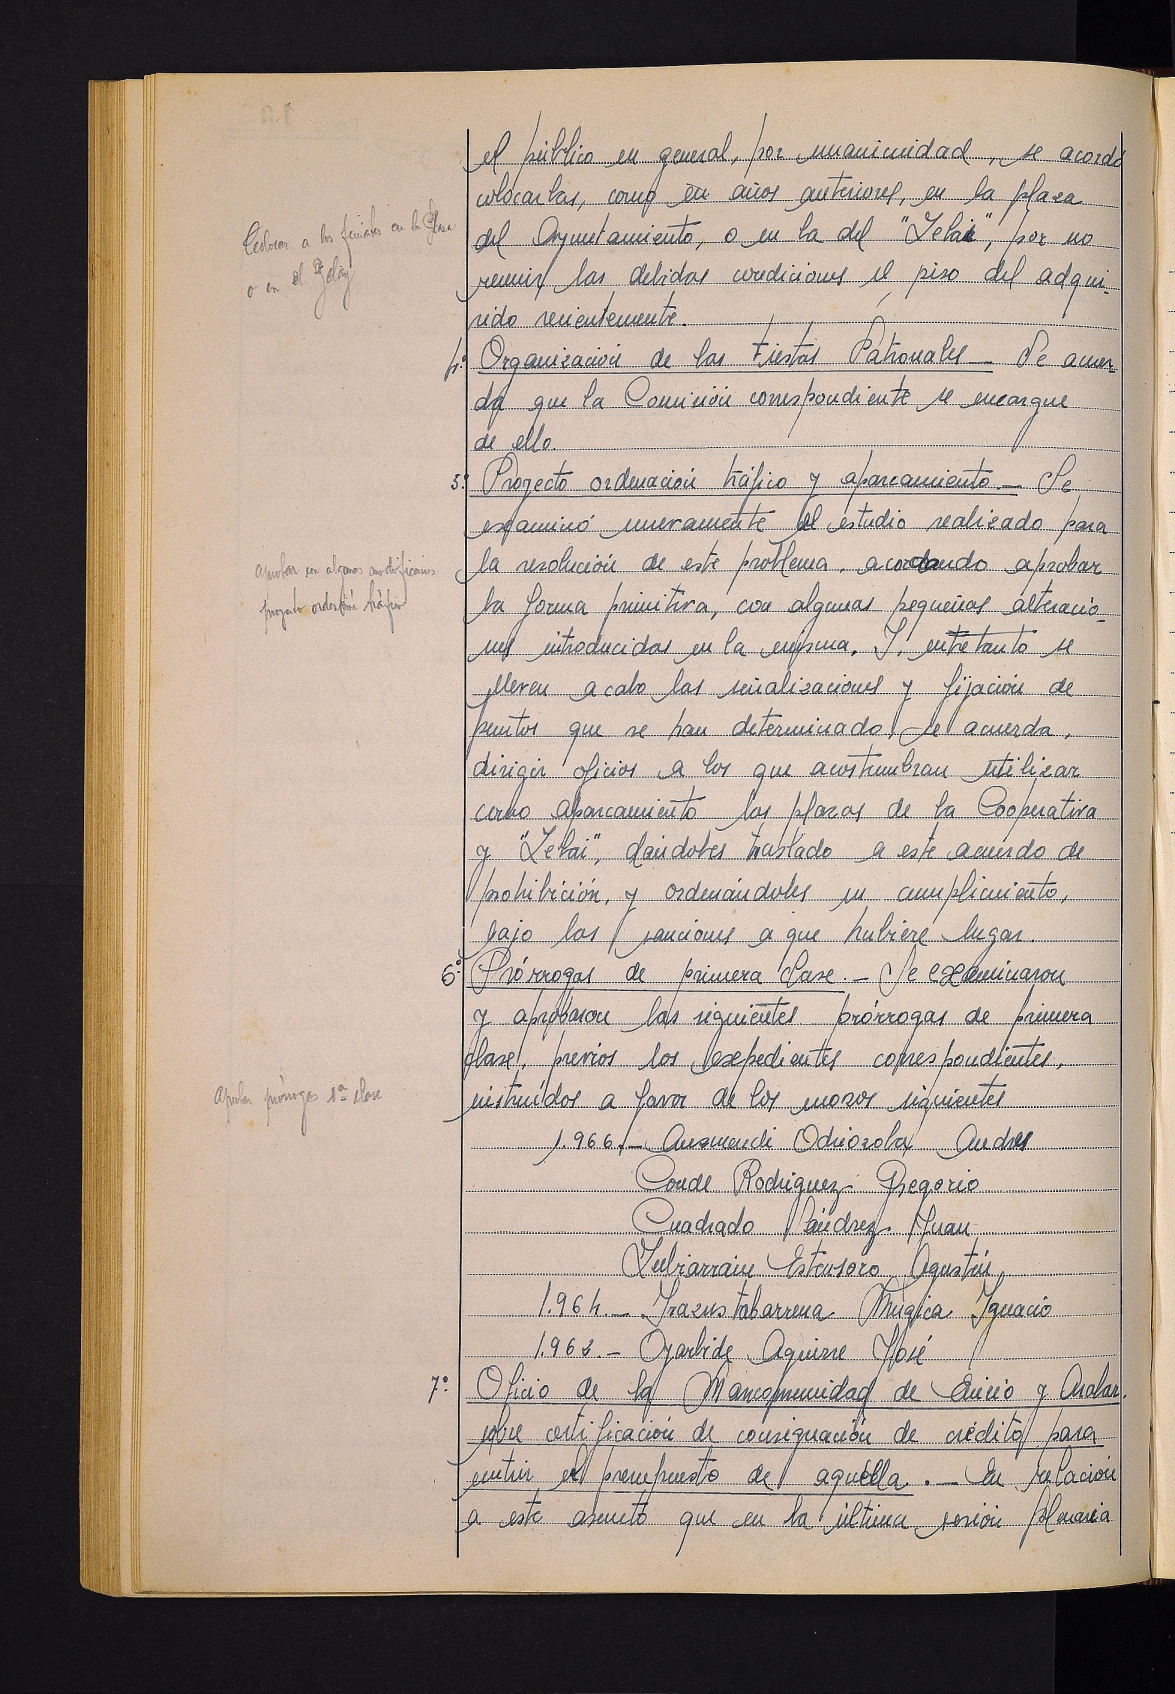 el público en general, por unanimidad, se acordó
colocarlas, como en años anteriores, en la plaza
Colocar a los feriales en la Plaza
o en el Zelay
del Ayuntamiento, o en la del "Zelai", por no
reunir las debidas condiciones el piso del adqui-
rido recientemente.
4º Organización de las Fiestas Patronales — Se acuer-
da que la Comisión correspondiente se encargue
de ello.
5º Proyecto ordenación tráfico y aparcamiento — Se
examinó nuevamente el estudio realizado para
aprobar con algunas modificaciones
proyecto ordenación tráfico
la resolución de este problema, acordando aprobar
la forma primitiva, con algunas pequeñas alteracio-
nes introducidas en la misma. Y, entretanto se
lleven a cabo las señalizaciones y fijación de
puntos que se han determinado, se acuerda,
dirigir oficios a los que acostumbran utilizar
como aparcamiento las plazas de la Cooperativa
y "Zelai", dándoles traslado a este acuerdo de
prohibición, y ordenándoles su cumplimiento,
bajo las sanciones a que hubiere lugar.
6º Prórrogas de primera clase. — Se examinaron
y aprobaron las siguientes prórrogas de primera
clase, previos los expedientes correspondientes,
Aprobar prórrogas 1ª clase
instruídos a favor de los mozos siguientes
1.966.— Auzmendi Odriozola Andres
Conde Rodriguez Gregorio
Cuadrado Juan
Zubiarrain Estensoro Agustín
1.964.— Irazustabarrena Múgica Ignacio
1.962.— Oyarbide Aguirre José
7º Oficio de la Mancomunidad de Enirio y Aralar,
sobre certificación de consignación de crédito para
nutrir el presupuesto de aquélla. — En relación
a este asunto que en la última sesión plenaria